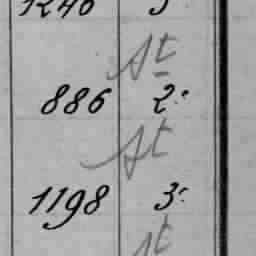 St
886 2.
St
1198 3.
St